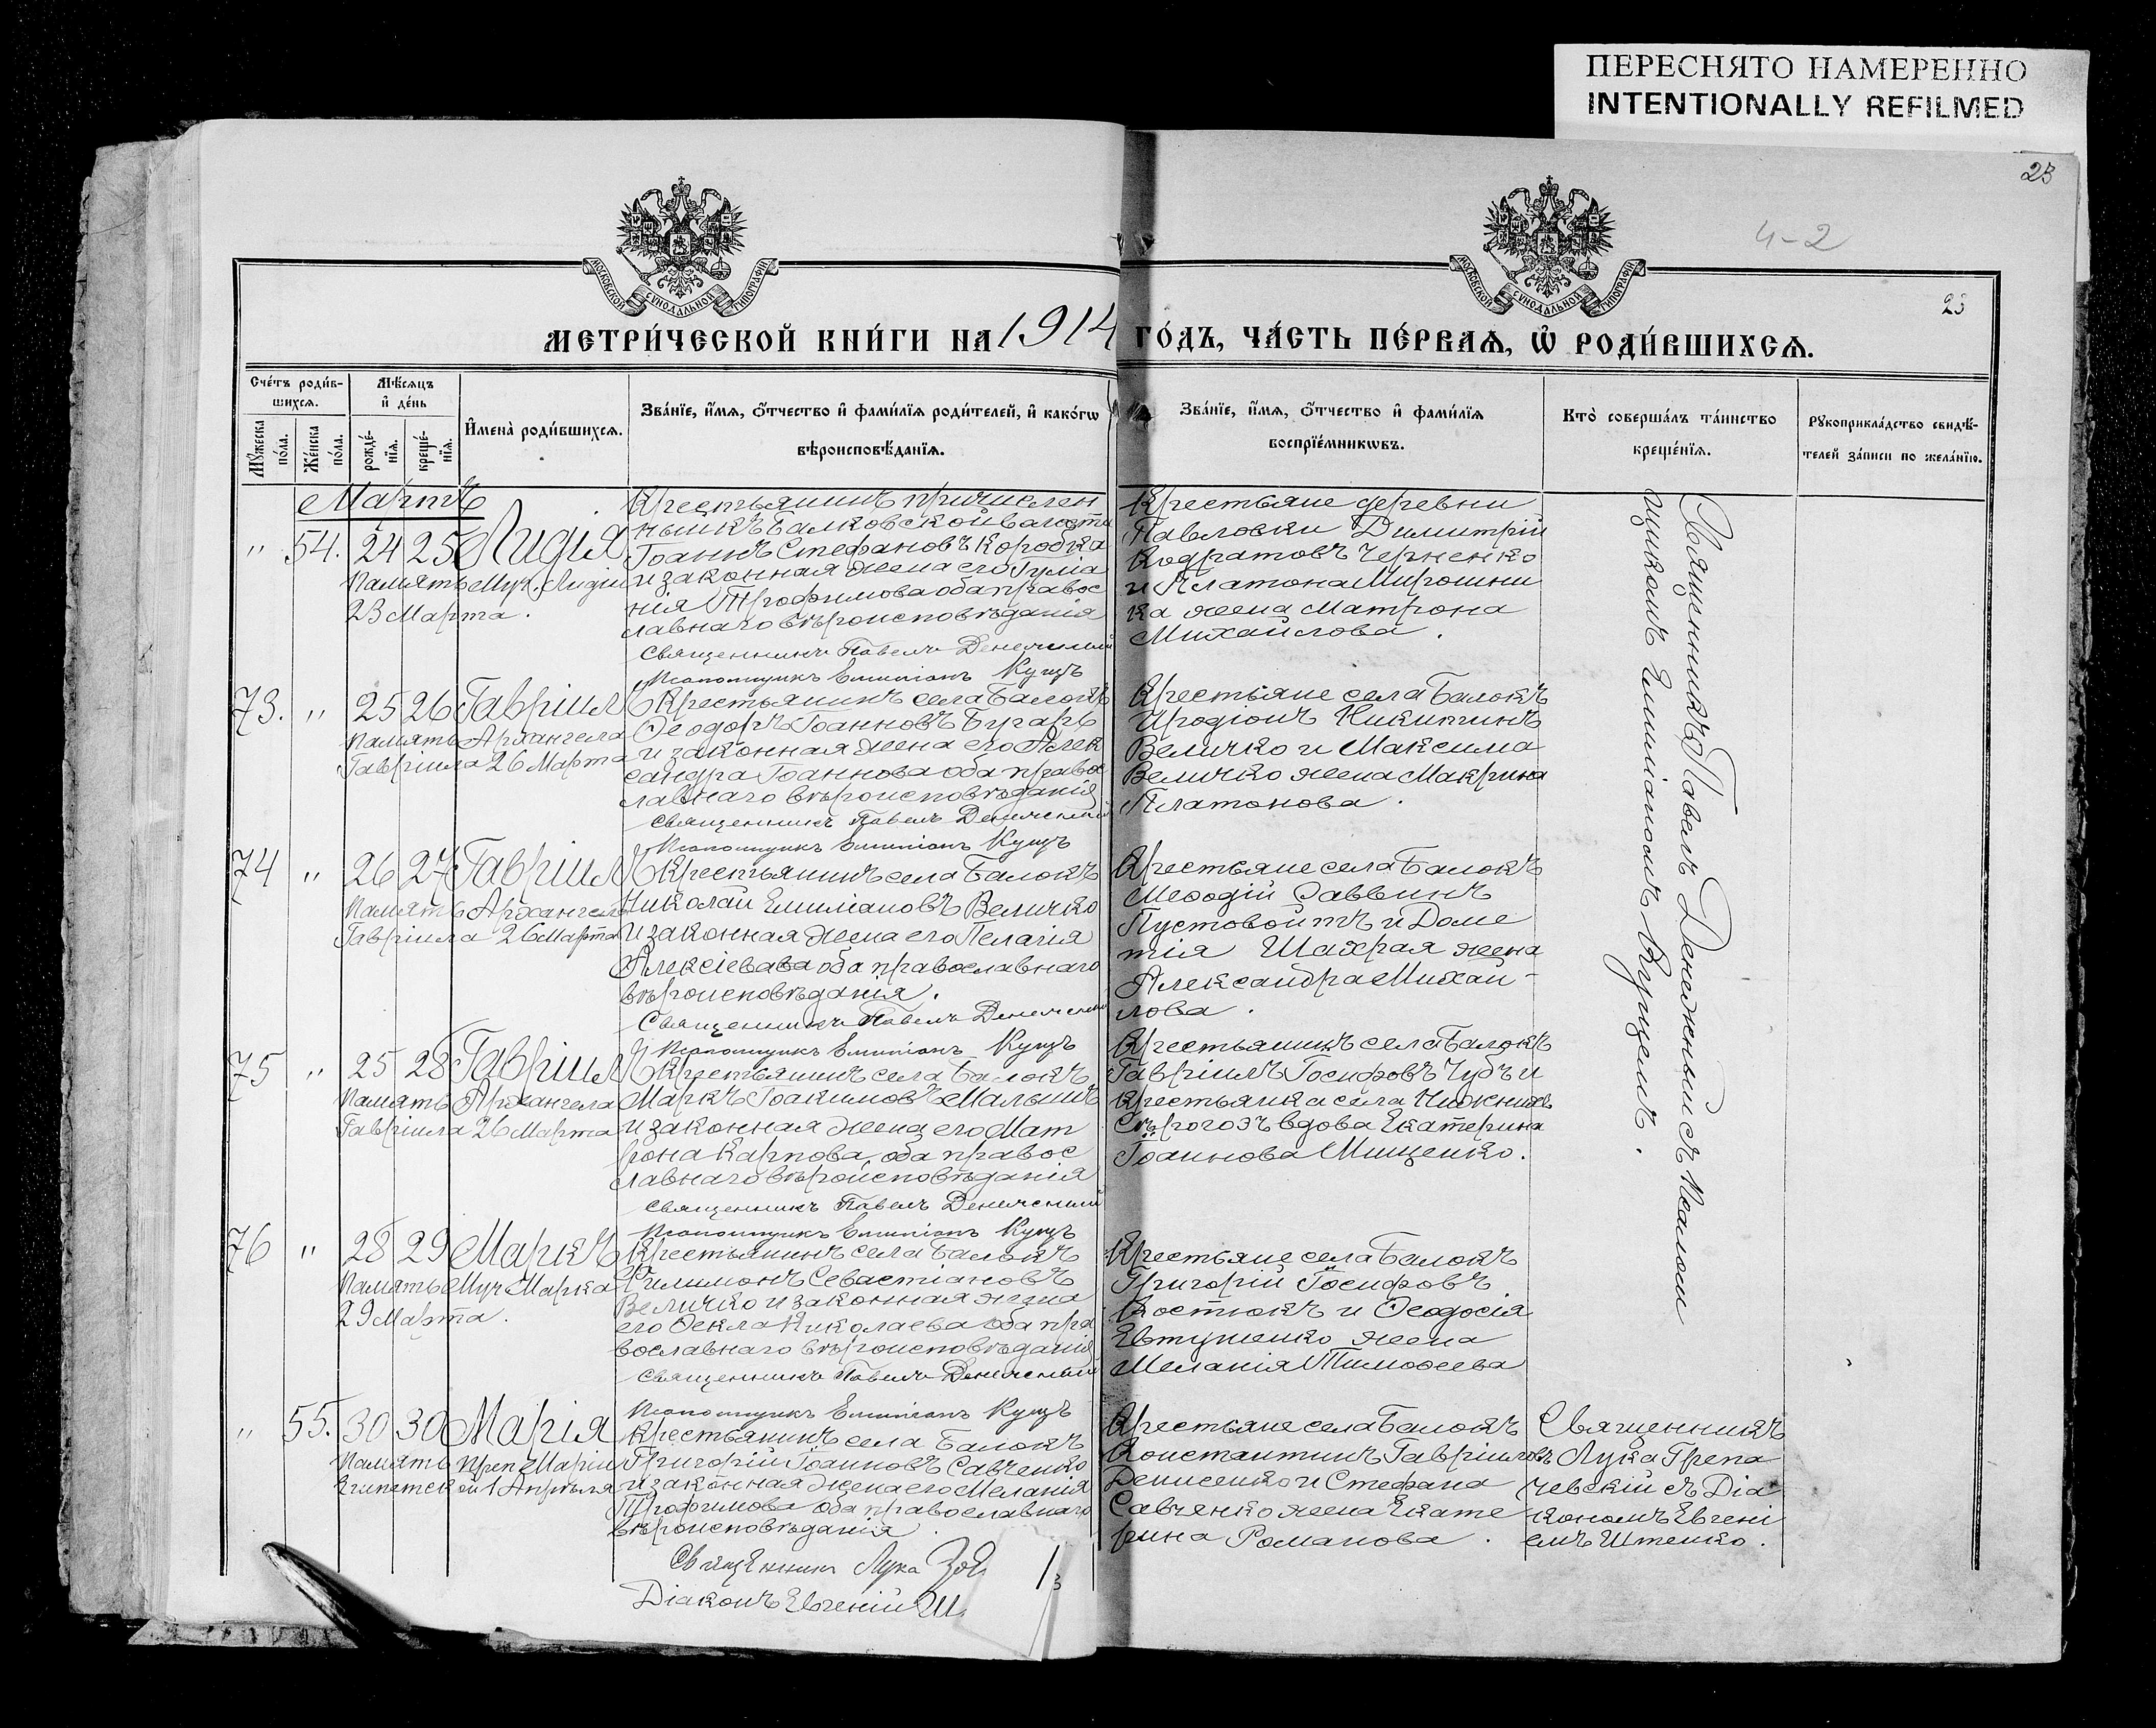 ПЕРЕСНЯТО НАМЕРЕННО
INTENTIONALLY REFILMED
23
4-2
МОСКОВСКОЙ СѴНОДАЛЬНОЙ ТИПОГРАФІИ
МОСКОВСКОЙ СѴНОДАЛЬНОЙ ТИПОГРАФІИ
23
МЕТРИ́ЧЕСКОЙ КНИ́ГИ НА 1914 ГО́ДЪ, ЧА́СТЬ ПЕ́РВАѦ, Ѽ РОДИ́ВШИХСѦ.
Сче́тъ роди́в-
шихсѧ.
Мѣ́сѧцъ
и҆ де́нь
Мꙋ́жеска
по́ла.
Же́нска
по́ла.
рожде́-
нїѧ.
креще́-
нїѧ.
И҆мена̀ роди́вшихсѧ.
Зва́нїе, и҆́мѧ, ѻ҆́тчество и҆ фами́лїѧ роди́телей, и҆ како́гѡ
вѣроисповѣ́данїѧ.
Зва́нїе, и҆́мѧ, ѻ҆́тчество и҆ фами́лїѧ
воспрїе́мникѡвъ.
Кто̀ соверша́лъ та́инство
креще́нїѧ.
Рꙋкоприкла́дство свидѣ́-
телей за́писи по жела́нїю.
Мартъ
" 54. 24 25 Лидія
Память Муч. Лидіи
23 Марта.
Крестьянинъ причислен
ный къ Балковской волости
Іоаннъ Стефановъ Коробка
и законная жена его Іулiа
нія Трофимова оба правос
лавнаго вѣроисповѣданія
Священникъ Павелъ Денежный
Псаломщикъ Емиліанъ Купцъ
Крестьяне деревни
Павловки Димитрій
Кодратовъ Черненко
и Платона Мирошни
ка жена Матрона
Михайлова.
Священникъ Павелъ Денежный съ Псалом
щикомъ Емиліаномъ Купцемъ.
73. " 25 26 Гавріилъ
Память Архангела
Гавріила 26 Марта
Крестьянинъ села Балокъ
Ѳеодоръ Іоанновъ Бугаръ
и законная жена его Алек
сандра Іоаннова оба правос
лавнаго вѣроисповѣданія
Священникъ Павелъ Денежный
Псаломщикъ Емиліанъ Купцъ
Крестьяне села Балокъ
Иродіонъ Никитинъ
Величко и Максима
Величко жена Макрина
Платонова.
74 " 26 27 Гавріилъ
Память Архангела
Гавріила 26 Марта
Крестьянинъ села Балокъ
Николай Емиліановъ Величко
и законная жена его Пелагія
Алексіевава оба православнаго
вѣроисповѣданія.
Священникъ Павелъ Денежный
Псаломщикъ Емиліанъ Купцъ
Крестьяне села Балокъ
Меѳодій Саввинъ
Пустовойтъ и Доме
тія Шахрая жена
Александра Михай-
лова.
75 " 25 28 Гавріилъ
Память Архангела
Гавріила 26 Марта
Крестьянинъ села Балокъ
Маркъ Іоакимовъ Малышъ
и законная жена его Мат
рона Карпова, оба правос
лавнаго вѣроисповѣданія
Священникъ Павелъ Денежный
Псаломщикъ Емиліанъ Купцъ
Крестьянинъ села Балокъ
Гавріилъ Іосифовъ Чубъ и
крестьянка села Нижнихъ
Сѣрогозъ вдова Екатерина
Іоаннова Мищенко.
76 " 28 29 Маркъ
Память Муч Марка
29 Марта.
Крестьянинъ села Балокъ
Филимонъ Севастіановъ
Величко и законная жена
его Ѳекла Николаева оба пра
вославнаго вѣроисповѣданія
Священникъ Павелъ Денежный
Псаломщикъ Емиліанъ Купцъ
Крестьяне села Балокъ
Григорій Іосифовъ
Костюкъ и Ѳеодосія
Евтушенко жена
Меланія Тимоѳеева
" 55. 30 30 Марія
Память Преп Маріи
Египетской 1 Апрѣля
Крестьянинъ села Балокъ
Григорій Іоанновъ Савченко
и законная жена его Меланія
Трофимова оба православнаго
вѣроисповѣданія
Священникъ Лука
Діаконъ Евгеній Ш
Крестьяне села Балокъ
Константинъ Гавріиловъ
Денисенко и Стефана
Савченко жена Екате
рина Романова.
Священникъ
Лука Грепа
чевскій съ Діа
кономъ Евгені
емъ Штенко.